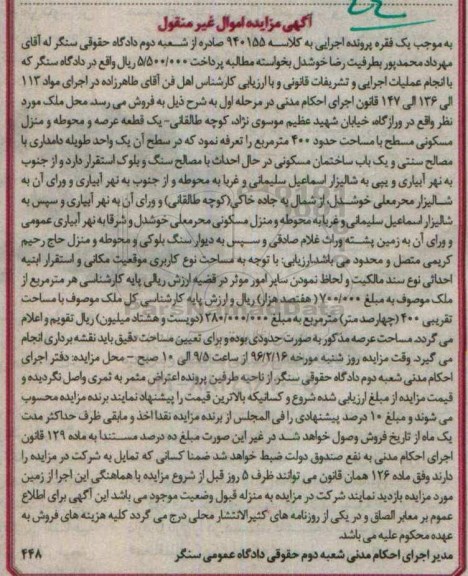 آگهی مزایده اموال غیر منقول
به موجب یک فقره پرونده اجرایی به کلاسه ۹۴۰۱۵۵ صادره از شعبه دوم دادگاه حقوقی سنگر له آقای
مهرداد محمدپور بطرفیت رضا خوشدل بخواسته مطالبه پرداخت ۵/۵۰۰/۰۰۰ ریال واقع در دادگاه سنگر که
با انجام عملیات اجرایی و تشریفات قانونی و با ارزیابی کارشناس اهل فن آقای طاهرزاده در اجرای مواد ۱۱۳
الی ۱۳۶ الی ۱۴۷ قانون اجرای احکام مدنی در مرحله اول به شرح ذیل به فروش می رسد. محل ملک مورد
نظر واقع در ورازگاه، خیابان شهید عظیم موسوی نژاد، کوچه طالقانی- یک قطعه عرصه و محوطه و منزل
مسکونی مسطح با مساحت حدود ۴۰۰ مترمربع را تعرفه نمود که در سطح آن یک واحد طویله دامداری با
مصالح سنتی و یک باب ساختمان مسکونی در حال احداث با مصالح سنگ و بلوک استقرار دارد و از جنوب
به نهر آبیاری و پی به شالیزار اسماعیل سلیمانی و غربا به محوطه و از جنوب به نهر آبیاری و ورای آن به
شالیزار محرمعلی خوشدل، از شمال به جاده خاکی (کوچه طالقانی) و ورای آن به نهر آبیاری و سپس به
شالیزار اسماعیل سلیمانی و غربا به محوطه و منزل مسکونی محرمعلی خوشدل و شرقا به نهر آبیاری عمومی
و ورای آن به زمین پشته وراث غلام صادقی و سپس به دیوار سنگ بلوکی و محوطه و منزل حاج رحیم
کریمی متصل و محدود می باشد. ارزیابی: با توجه به مساحت نوع کاربری موقعیت مکانی و استقرار ابنیه
احداثی نوع سند مالکیت و لحاظ نمودن سایر امور موثر در قضیه ارزش ریالی پایه کارشناسی هر مترمربع از
ملک موصوف به مبلغ ۷۰۰/۰۰۰ ( هفتصد هزار) ریال و ارزش پایه کارشناسی کل ملک موصوف با مساحت
تقریبی ۴۰۰ (چهارصد متر) مترمربع به مبلغ ۲۸۰/۰۰۰/۰۰۰ (دویست و هشتاد میلیون) ریال تقویم و اعلام
می گردد. مساحت عرصه مذکور به صورت حدودی بوده و برای تعیین مساحت دقیق باید نقشه برداری انجام
می گیرد. وقت مزایده روز شنبه مورخه ۹۶/۲/۱۶ از ساعت ۹/۵ الی ۱۰ صبح - محل مزایده: دفتر اجرای
احکام مدنی شعبه دوم دادگاه حقوقی سنگر. از ناحیه طرفین پرونده اعتراض مثمر به ثمری واصل نگردیده و
قیمت مزایده از مبلغ ارزیابی شده شروع و کسانیکه بالاترین قیمت را پیشنهاد نمایند برنده مزایده محسوب
می شوند و مبلغ ۱۰ درصد پیشنهادی را فی المجلس از برنده مزایده نقدا اخذ و مابقی ظرف حداکثر مدت
یک ماه از تاریخ فروش وصول خواهد شد در غیر این صورت مبلغ ده درصد مستندا به ماده ۱۲۹ قانون
اجرای احکام مدنی به نفع صندوق دولت ضبط خواهد شد ضمنا کسانی که تمایل به شرکت در مزایده را
دارند وفق ماده ۱۲۶ همان قانون می توانند ظرف ۵ روز قبل از شروع مزایده با هماهنگی این اجرا از زمین
مورد مزایده بازدید نمایند شرکت در مزایده به منزله قبول وضعیت موجود می باشد این آگهی برای اطلاع
عموم بر معابر الصاق و در یکی از روزنامه های کثیرالانتشار محلی درج می گردد کلیه هزینه های فروش به
عهده محکوم علیه می باشد.
مدیر اجرای احکام مدنی شعبه دوم حقوقی دادگاه عمومی سنگر ۴۴۸